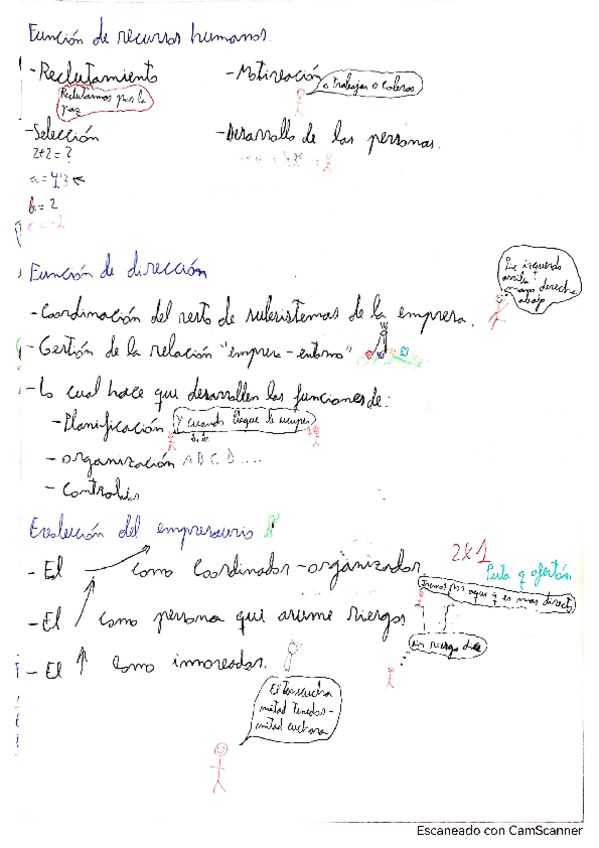 Función de recursos humanos.
- Reclutamiento
Reclutamos por la paz
- Motivación
o trabajas o cobras
- Selección
2+2=?
a = 4'3
b = 2
c = -2
- Desarrollo de las personas.
Función de dirección
Pie izquierdo
arriba
mano derecha
abajo
- Coordinación del resto de subsistemas de la empresa.
- Gestión de la relación "empresa-entorno"
- Lo cual hace que desarrollen las funciones de:
- Planificación
Y cuando llegue le escupes
- organización A B C D ....
- Control
Evolución del empresario
- El como Coordinador-organizador.
2x1
Puta q ofertón
- El como persona que asume riesgos
iremos por aqui q es mas directo
sin riesgo
- El como innovador.
El
mitad tenedor-
mitad cuchara
Escaneado con CamScanner